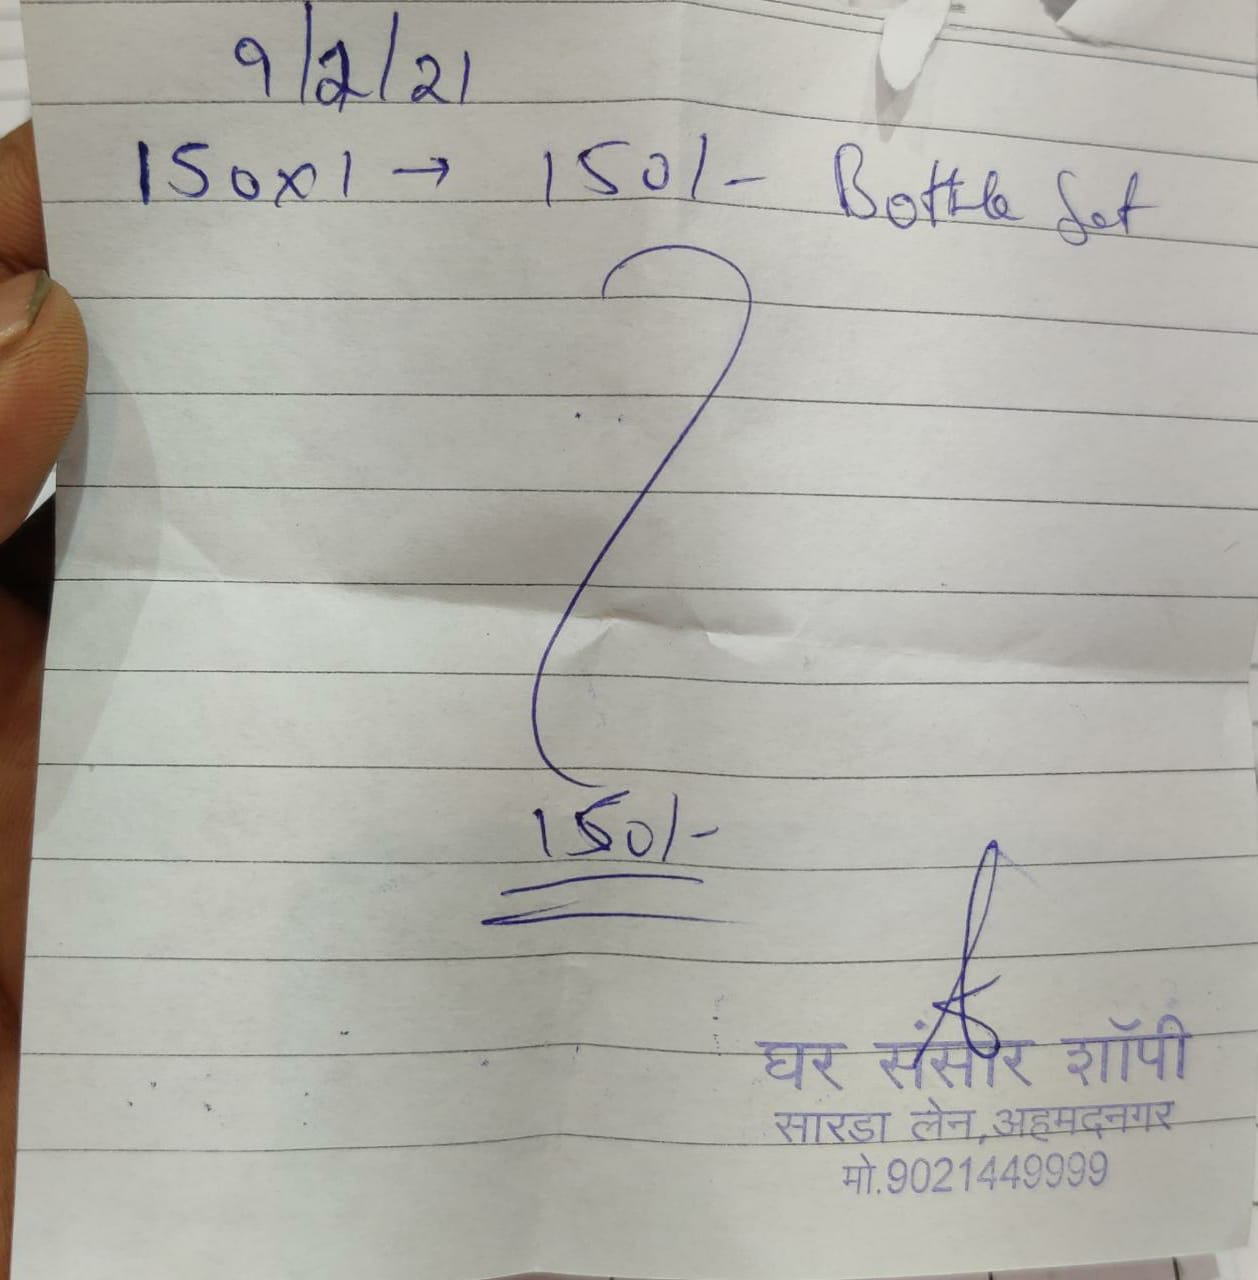 9/2/21
150x1 → 150/- Bottle Set
150/-
घर संसार शॉपी
सारडा लेन,अहमदनगर
मो.9021449999